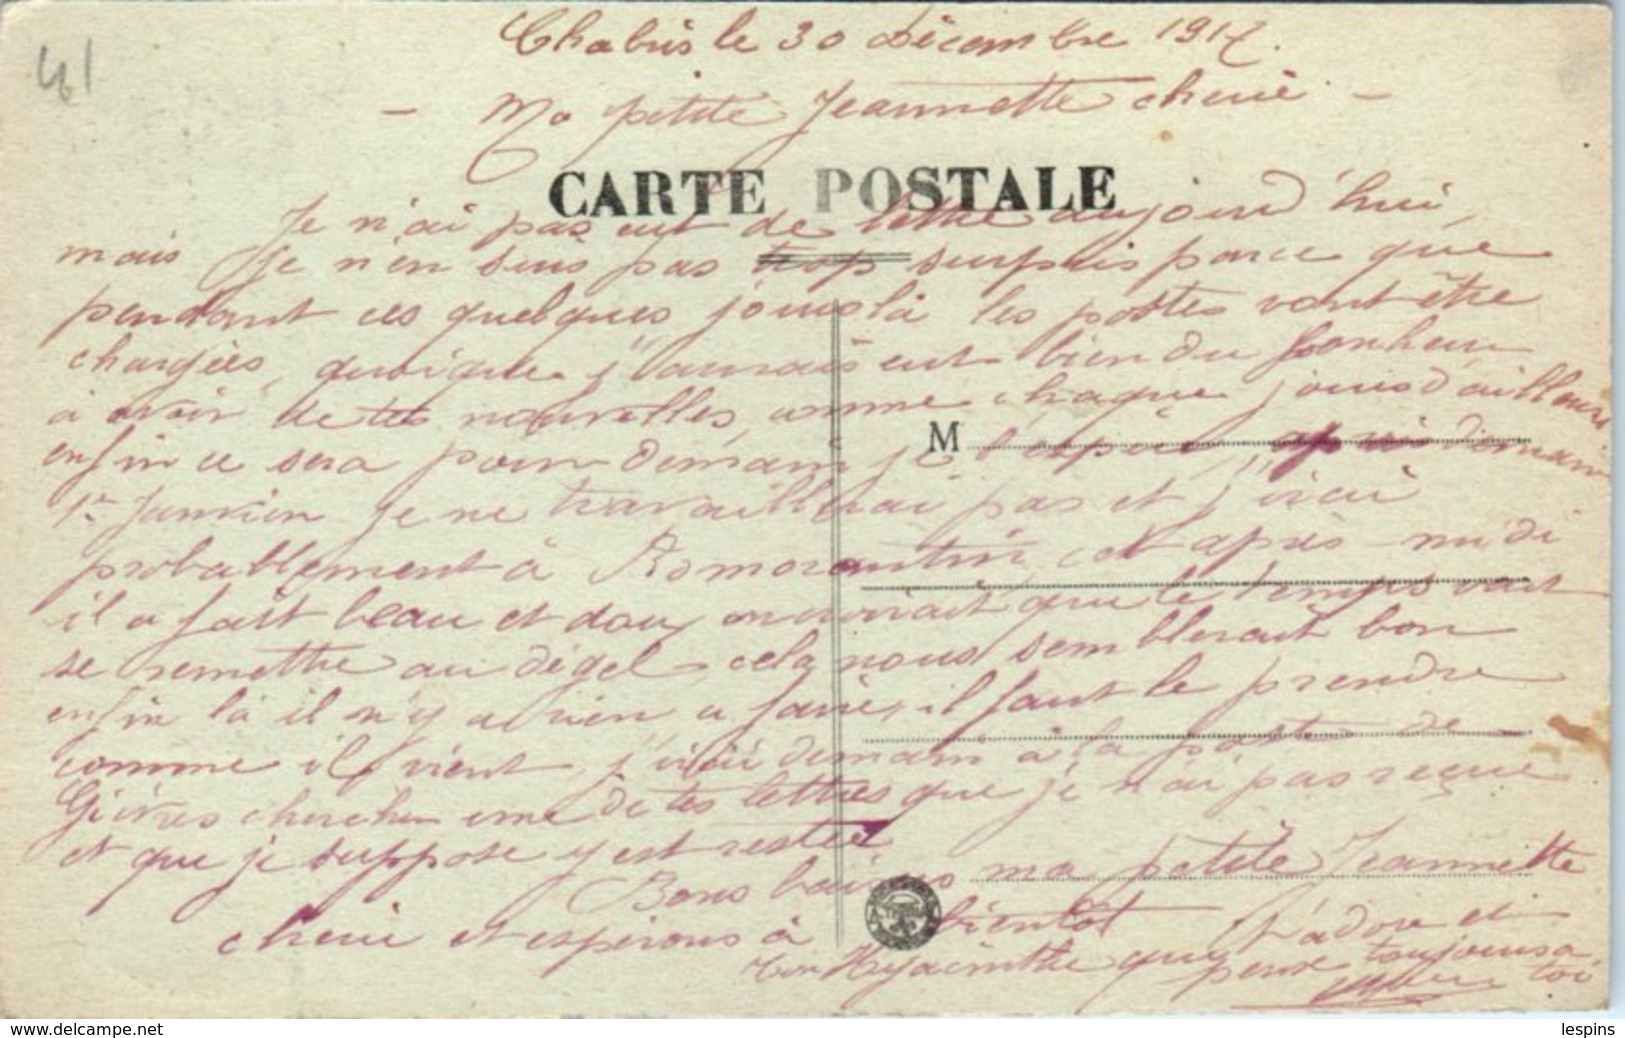 41
Chabris le 30 Décembre 1917.
- Ma petite Jeannette cherie -
CARTE POSTALE
Je n'ai pas eut de lettre aujourd'hui,
mais je n'en suis pas trop surpris parce que
pendant ces quelques jours là les postes vont être
chargées, quoique j'aurais eut bien du bonheur
à avoir de tes nouvelles, comme chaque jours d'ailleurs
enfin ce sera pour demain je l'espère après demain
M
1er Janvier je ne travaillerai pas et j'irai
probablement à Romorantin, cet après-midi
il a fait beau et doux on croirait que le temps vait
se remettre au dégel, cela nous semblerait bon
enfin là il n'y a rien a faire, il faut le prendre
comme il vient, j'irai demain à la poste de
Gièvres chercher une de tes lettres que je n'ai pas reçue
et que je suppose y est restée
Bons baisers ma petite Jeannette
cherie et espérons à bientôt
Ton Hyacinthe qui t'adore et
pense toujours a
toi
www.delcampe.net
lespins